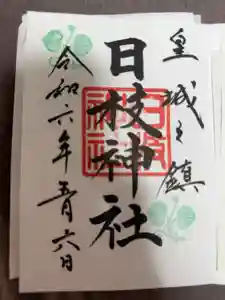 皇城之鎮
日枝神社
令和六年五月六日